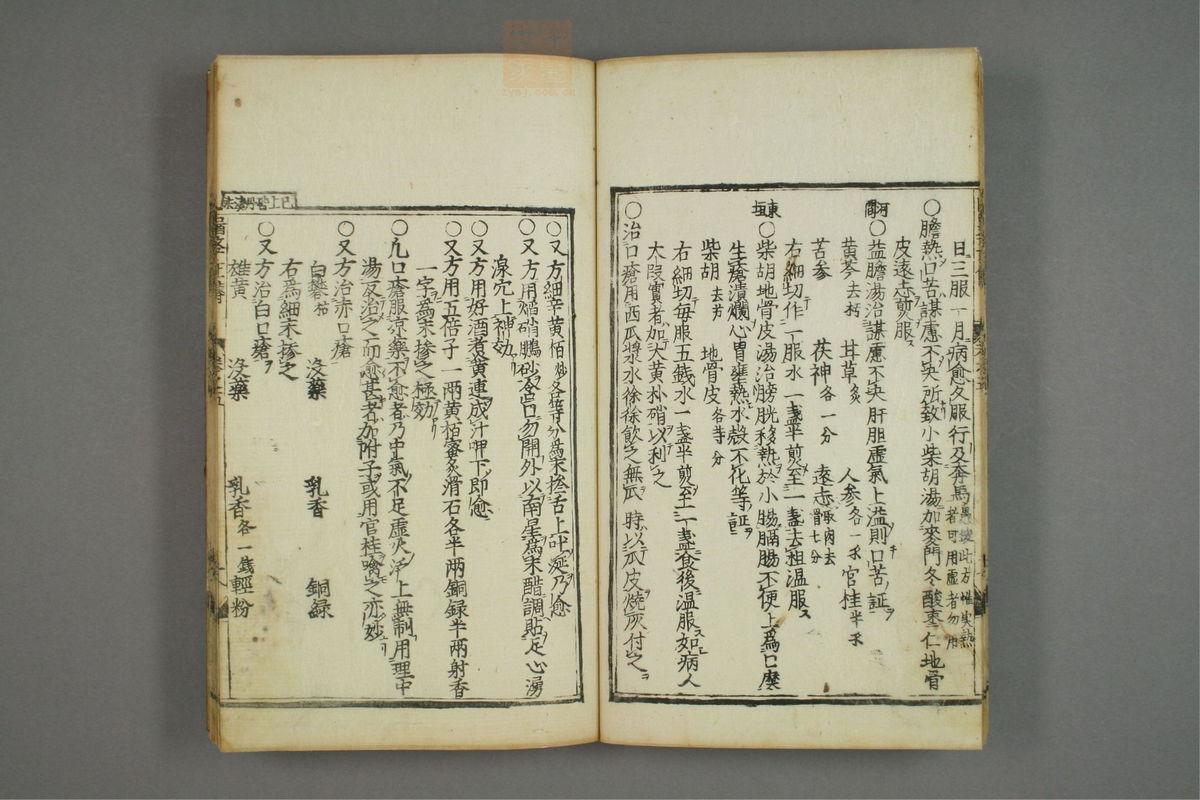 日三服一月病愈久服行及奔馬愚按此方惟实熱者可用虚者勿用
○膽熱口苦謀慮不决所致小柴胡湯加麥門冬酸棗仁地骨
皮遠志煎服
河間○益膽湯治謀慮不决肝胆虚氣上溢則口苦証
黄芩去朽 甘草炙 人参各一不 官桂半不
苦參 茯神各一分 遠志取肉去骨七分
右細切作一服水一盞半煎至一盞去柤温服
東垣○柴胡地骨皮湯治膀胱移熱於小腸膈腸不便上為口糜
生瘡潰爛心胃壅熱水穀不化等証
柴胡去芦 地骨皮各等分
右細切每服五銭水一盞半煎至一盞食後温服如病人
大叚實者加大黄朴硝以利之
○治口瘡用西瓜漿水徐徐飲之無瓜時以瓜皮燒灰付之
○又方細辛黄栢炒各等分為末捻舌上吐涎乃愈
○又方用焔硝鵬砂含口勿開外以南星為末醋調貼足心湧
泉穴上神効
○又方用好酒煮黄連成汁呷下即愈
○又方用五倍子一两黄栢蜜炙滑石各半两銅緑半两射香
一字為末摻之極効
○凡口瘡服凉藥不愈者乃中氣不足虚火泛上無制用理中
湯反治之而愈甚者加附子或用官桂噙之亦妙
○又方治赤口瘡
白礬枯 没藥 乳香 銅緑
右為細末摻之
○又方治白口瘡
雄黄 没藥 乳香各一銭 輕粉
已上皆丹溪法